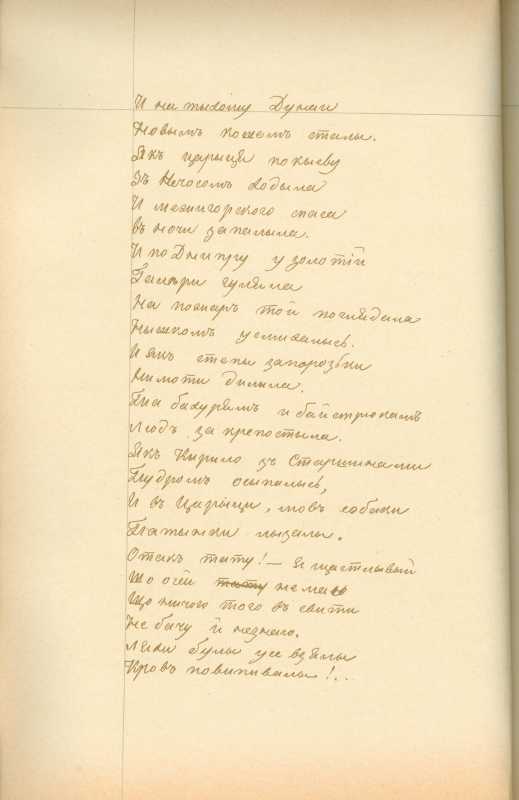 И на тыхому Дунаи
Новымъ кошемъ сталы.
Якъ царыця по кыеву
Зъ Нечосомъ ходыла
И межигорского спаса
въ ночи запалыла.
И по Днипру у золотій
Галѣри гуляла
На пожаръ той поглядала
Нышкомъ усмихалысь.
И якъ степы запорозьки
Нимоти дилыла.
Та бахурямъ и байстрюкамъ
Людъ закрепостыла.
Якъ Кирило зъ Старшинами
Пудромъ осыпалысь,
И въ Царыци, мовъ собаки
Патынки лызалы.
Отакъ тату! — Я щастлывый
Що очей тату нема
Що ничого того въ свити
Не бачу й незнаю.
Ляхи булы усе взялы
Кровъ повыпывалы!..